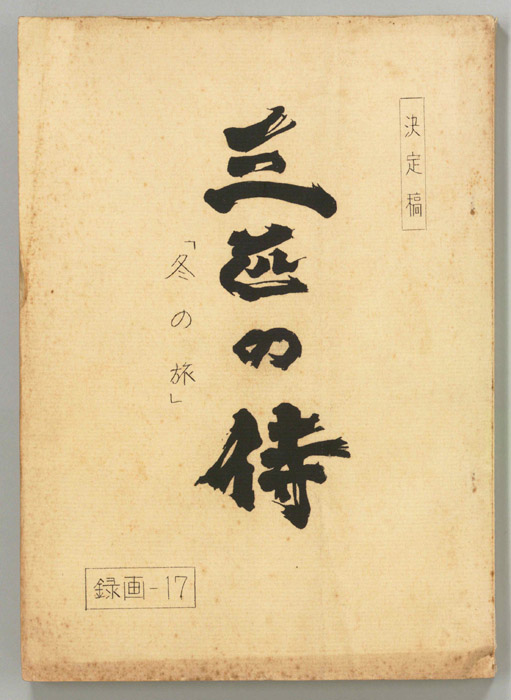 決定稿
三匹の侍
「冬の旅」
録画-17